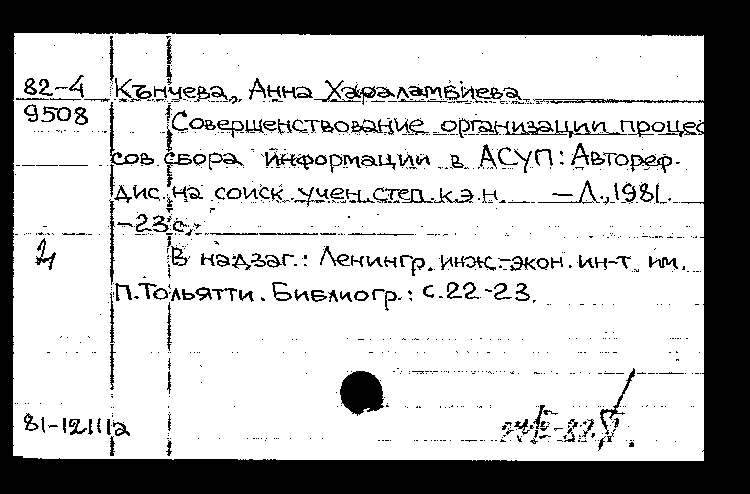 82-4 Кънчева, Анна Хараламбиева
9508 Совершенствование организации процес
сов сбора информации в АСУП: Автореф.
дис. на соиск. учен. степ. к.э.н. — Л., 1981.
-23 с.
В надзаг.: Ленингр. инж.-экон. ин-т им.
П. Тольятти. Библиогр.: с. 22-23.
81-12111а